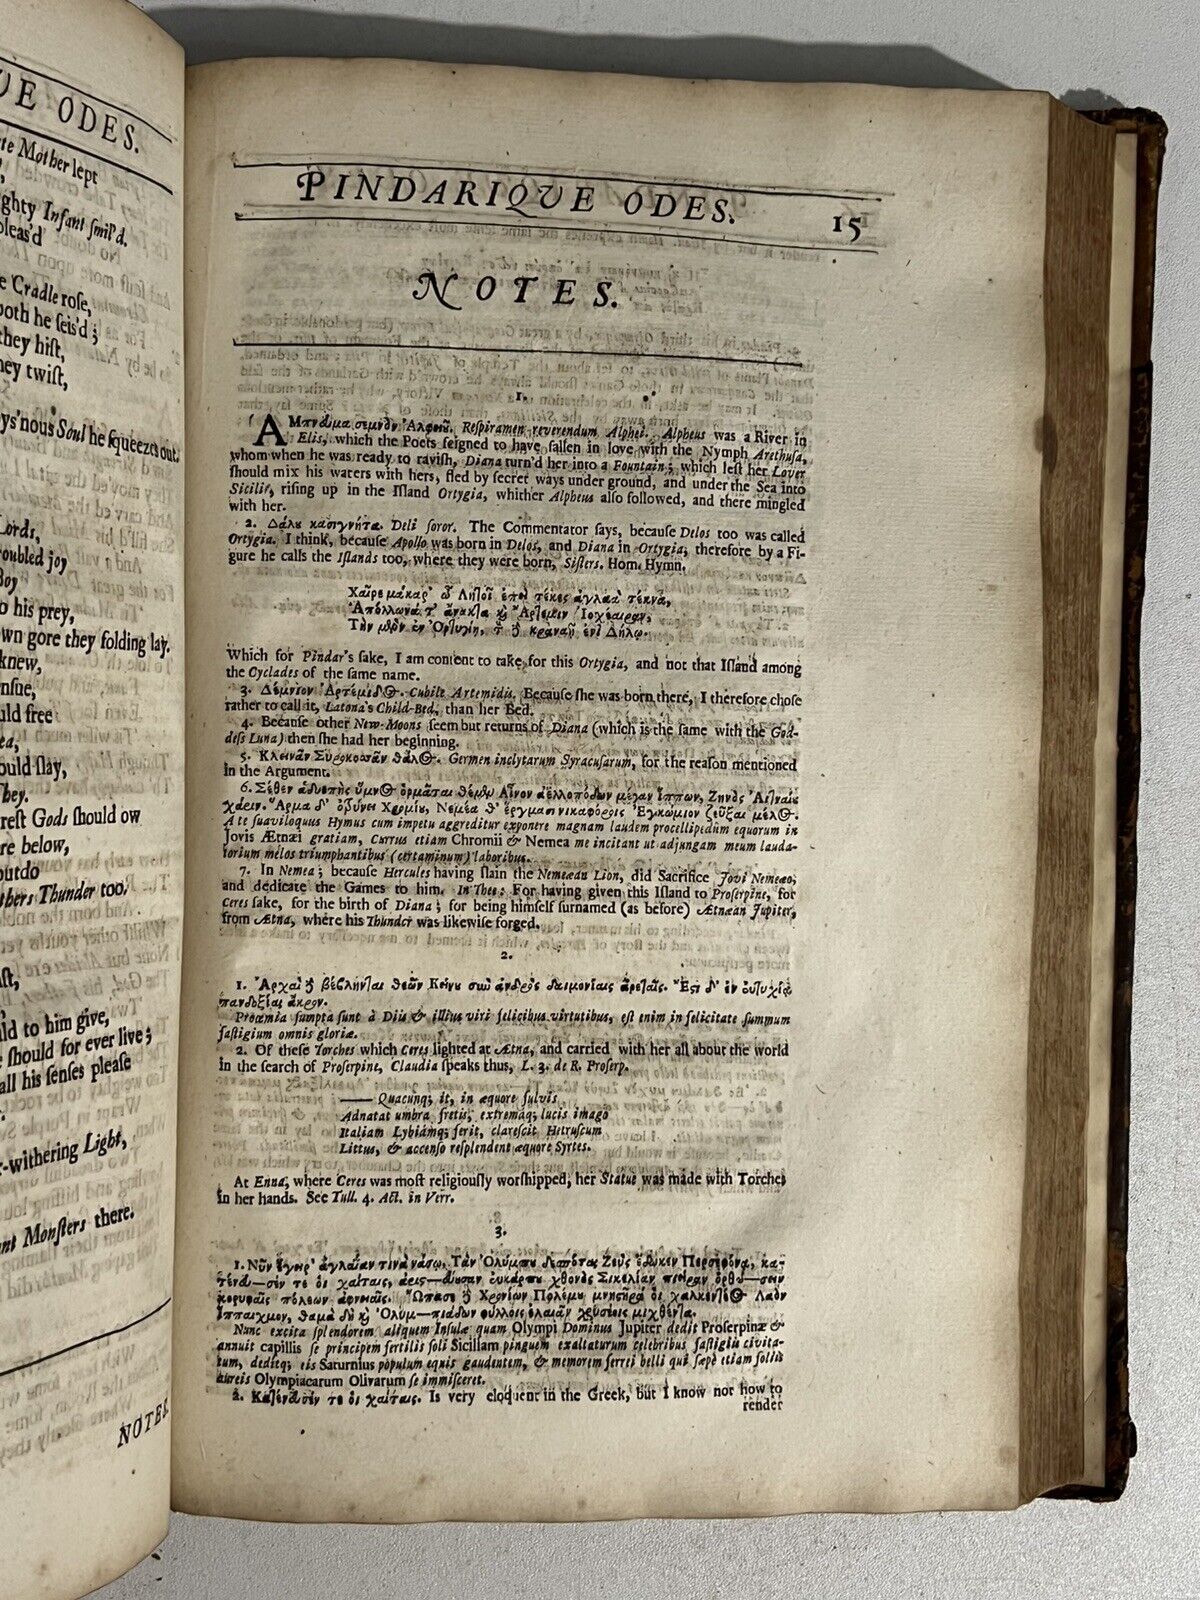 UE ODES.
te Mother lept
ghty Infant ſmil'd.
pleas'd
e Cradle roſe,
both he ſeis'd;
they hiſt,
hey twiſt,
ys'nous Soul he ſqueezes out.
Lords,
roubled joy
Boy
o his prey,
own gore they folding lay.
knew,
nſue,
uld free
ea,
ould ſlay,
They.
reſt Gods ſhould ow
re below,
outdo
thers Thunder too.
uld to him give,
e ſhould for ever live;
all his ſenſes pleaſe
r-withering Light,
ant Monſters there.
NOTES
PINDARIQUE ODES. 15
NOTES.
1.
ἌΜπνευμα σεμνὸν Ἀλφειοῦ. Reſpiramen reverendum Alphei. Alpheus was a River in
Elis, which the Poets feigned to have fallen in love with the Nymph Arethuſa,
whom when he was ready to raviſh, Diana turn'd her into a Fountain; which left her Lover
ſhould mix his waters with hers, fled by ſecret ways under ground, and under the Sea into
Sicilie, riſing up in the Iſland Ortygia, whither Alpheus alſo followed, and there mingled
with her.
2. Δάλυ κασιγνήτα. Deli ſoror. The Commentator ſays, becauſe Delos too was called
Ortygia. I think, becauſe Apollo was born in Delos, and Diana in Ortygia, therefore by a Fi-
gure he calls the Iſlands too, where they were born, Siſters. Hom. Hymn.
Χαῖρε μάκαρ' ὦ Λητοῖ ἐπεὶ τέκες ἀγλαὰ τέκνα,
Ἀπόλλωνά τ' ἄνακτα ϗ Ἄρτεμιν Ἰοχέαιραν,
Τὴν μὲν ἐν Ὀρτυγίῃ, τ ἢ κραναῇ ἐνὶ Δήλῳ.
Which for Pindar's ſake, I am content to take for this Ortygia, and not that Iſland among
the Cyclades of the ſame name.
3. Δέμνιον Ἀρτέμιδος. Cubile Artemidis. Becauſe ſhe was born there, I therefore choſe
rather to call it, Latona's Child-Bed, than her Bed.
4. Becauſe other New-Moons ſeem but returns of Diana (which is the ſame with the God-
deſs Luna) then ſhe had her beginning.
5. Κλεινᾶν Συρακοσσᾶν θάλος. Germen inclytarum Syracuſarum, for the reaſon mentioned
in the Argument.
6. Σέθεν ἁδυεπὴς ὕμνος ὁρμᾶται θέμεν Αἶνον ἀελλοπόδων μέγαν ἵππων, Ζηνὸς Αἰτναίυ
χάριν. Ἅρμα δ' ὀξύνει Χρομίυ, Νεμέα θ' ἔργμασι νικαφόροις Ἐγκώμιον ζεῦξαι μέλος.
A te ſuaviloquus Hymus cum impetu aggreditur exponere magnam laudem procellipedum equorum in
Jovis Ætnæi gratiam, Currus etiam Chromii & Nemea me incitant ut adjungam meum lauda-
torium melos triumphantibus (certaminum) laboribus.
7. In Nemea; becauſe Hercules having ſlain the Nemeæan Lion, did Sacrifice Jovi Nemeæo,
and dedicate the Games to him. In Thee: For having given this Iſland to Proſerpine, for
Ceres ſake, for the birth of Diana; for being himſelf ſurnamed (as before) Ætnæan Jupiter,
from Ætna, where his Thunder was likewiſe forged.
2.
1. Ἀρχαὶ ἢ βέβληνται θεῶν Κείνυ σὺν ἀνδρὸς δαιμονίαις ἀρεταῖς. Ἔςι δ' ἐν εὐτυχίᾳ
πανδοξίας ἄκρον.
Proœmia ſumpta ſunt à Diis & illius viri felicibus virtutibus, eſt enim in felicitate ſummum
faſtigium omnis gloriæ.
2. Of theſe Torches which Ceres lighted at Ætna, and carried with her all about the world
in the ſearch of Proſerpine, Claudia ſpeaks thus, L. 3. de R. Proſerp.
—— Quacunq; it, in æquore fulvis
Adnatat umbra fretis, extremaq; lucis imago
Italiam Lybiamq; ferit, clareſcit Hetruſcum
Littus, & accenſo reſplendent æquore Syrtes.
At Enna, where Ceres was moſt religiouſly worſhipped, her Statue was made with Torches
in her hands. See Tull. 4. Act. in Verr.
3.
1. Νῦν ἔγειρ' ἀγλαΐαν τινὰ νάσῳ, Τὰν Ὀλύμπυ δεσπότας Ζεὺς ἔδωκεν Περσεφόνᾳ, κα-
τένευ—σέν τέ οἱ χαίταις, ἀρις—εύοισαν εὐκάρπυ χθονὸς Σικελίαν πίειραν ὀρθώ—σειν
κορυφαῖς πόλεων ἀφνεαῖς. Ὤπασε ἢ Κρονίων Πολέμυ μνηςῆρά οἱ χαλκεντέος Λαὸν
ἵππαιχμον, θαμὰ δὴ ϗ Ὀλυμ—πιάδων φύλλοις ἐλαιᾶν χρυσέοις μιχθέντα.
Nunc excita ſplendorem aliquem Inſulæ quam Olympi Dominus Jupiter dedit Proſerpinæ &
annuit capillis ſe principem fertilis ſoli Siciliam pinguem exaltaturum celebribus faſtigiis civita-
tum, deditq; eis Saturnius populum equis gaudentem, & memorem ferrei belli qui ſæpe etiam foliis
aureis Olympiacarum Olivarum ſe immiſceret.
2. Κατένευσέν τέ οἱ χαίταις. Is very eloquent in the Greek, but I know not how to
render